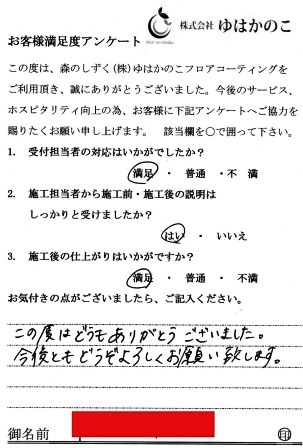 株式会社 ゆはかのこ
お客様満足度アンケート
この度は、森のしずく(株)ゆはかのこフロアコーティングを
ご利用頂き、誠にありがとうございました。今後のサービス、
ホスピタリティ向上の為、お客様に下記アンケートへご協力を
賜りたくお願い申し上げます。 該当欄を○で囲って下さい。
1. 受付担当者の対応はいかがでしたか?
満足 ・ 普通 ・ 不 満
2. 施工担当者から施工前・施工後の説明は
しっかりと受けましたか?
はい ・ いいえ
3. 施工後の仕上がりはいかがですか?
満足 ・ 普通 ・ 不満
お気付きの点がございましたら、ご記入ください。
この度はどうもありがとうございました。
今後ともどうぞよろしくお願い致します。
御名前
印